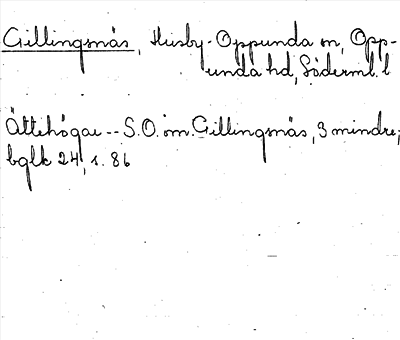 Gillingsnäs, Husby-Oppunda sn, Opp-
unda hd, Söderml. l
Ättehögar -- S.O. om Gillingsnäs, 3 mindre;
bglk 24, s. 86